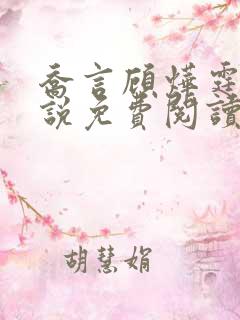 喬言顧燁霆
說免費閱讀
胡慧娟